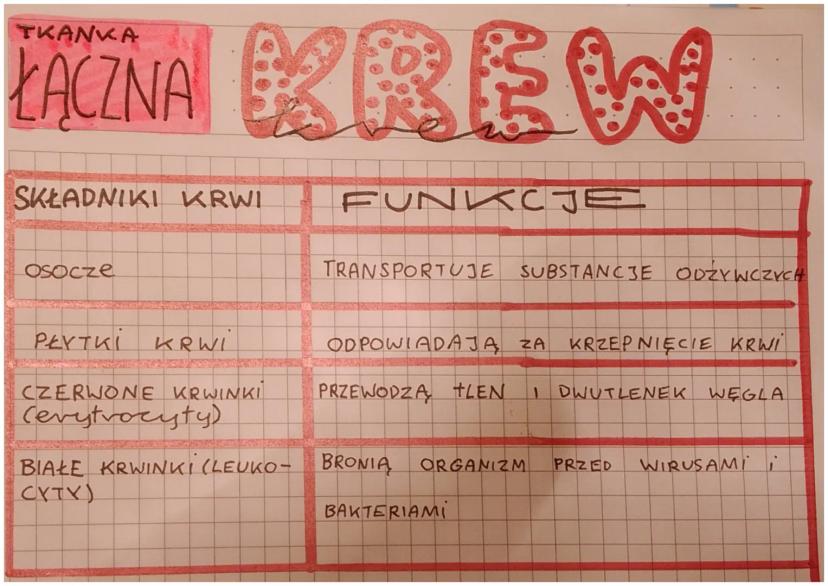 TKANKA
ŁĄCZNA
KREW
krew
SKŁADNIKI KRWI
FUNKCJE
osocze
TRANSPORTUJE SUBSTANCJE ODŻYWCZYCH
PŁYTKI KRWI
ODPOWIADAJĄ ZA KRZEPNIĘCIE KRWI
CZERWONE KRWINKI
(erytrocyty)
PRZEWODZĄ TLEN I DWUTLENEK WĘGLA
BIAŁE KRWINKI (LEUKO-
CYTY)
BRONIĄ ORGANIZM PRZED WIRUSAMI i
BAKTERIAMI